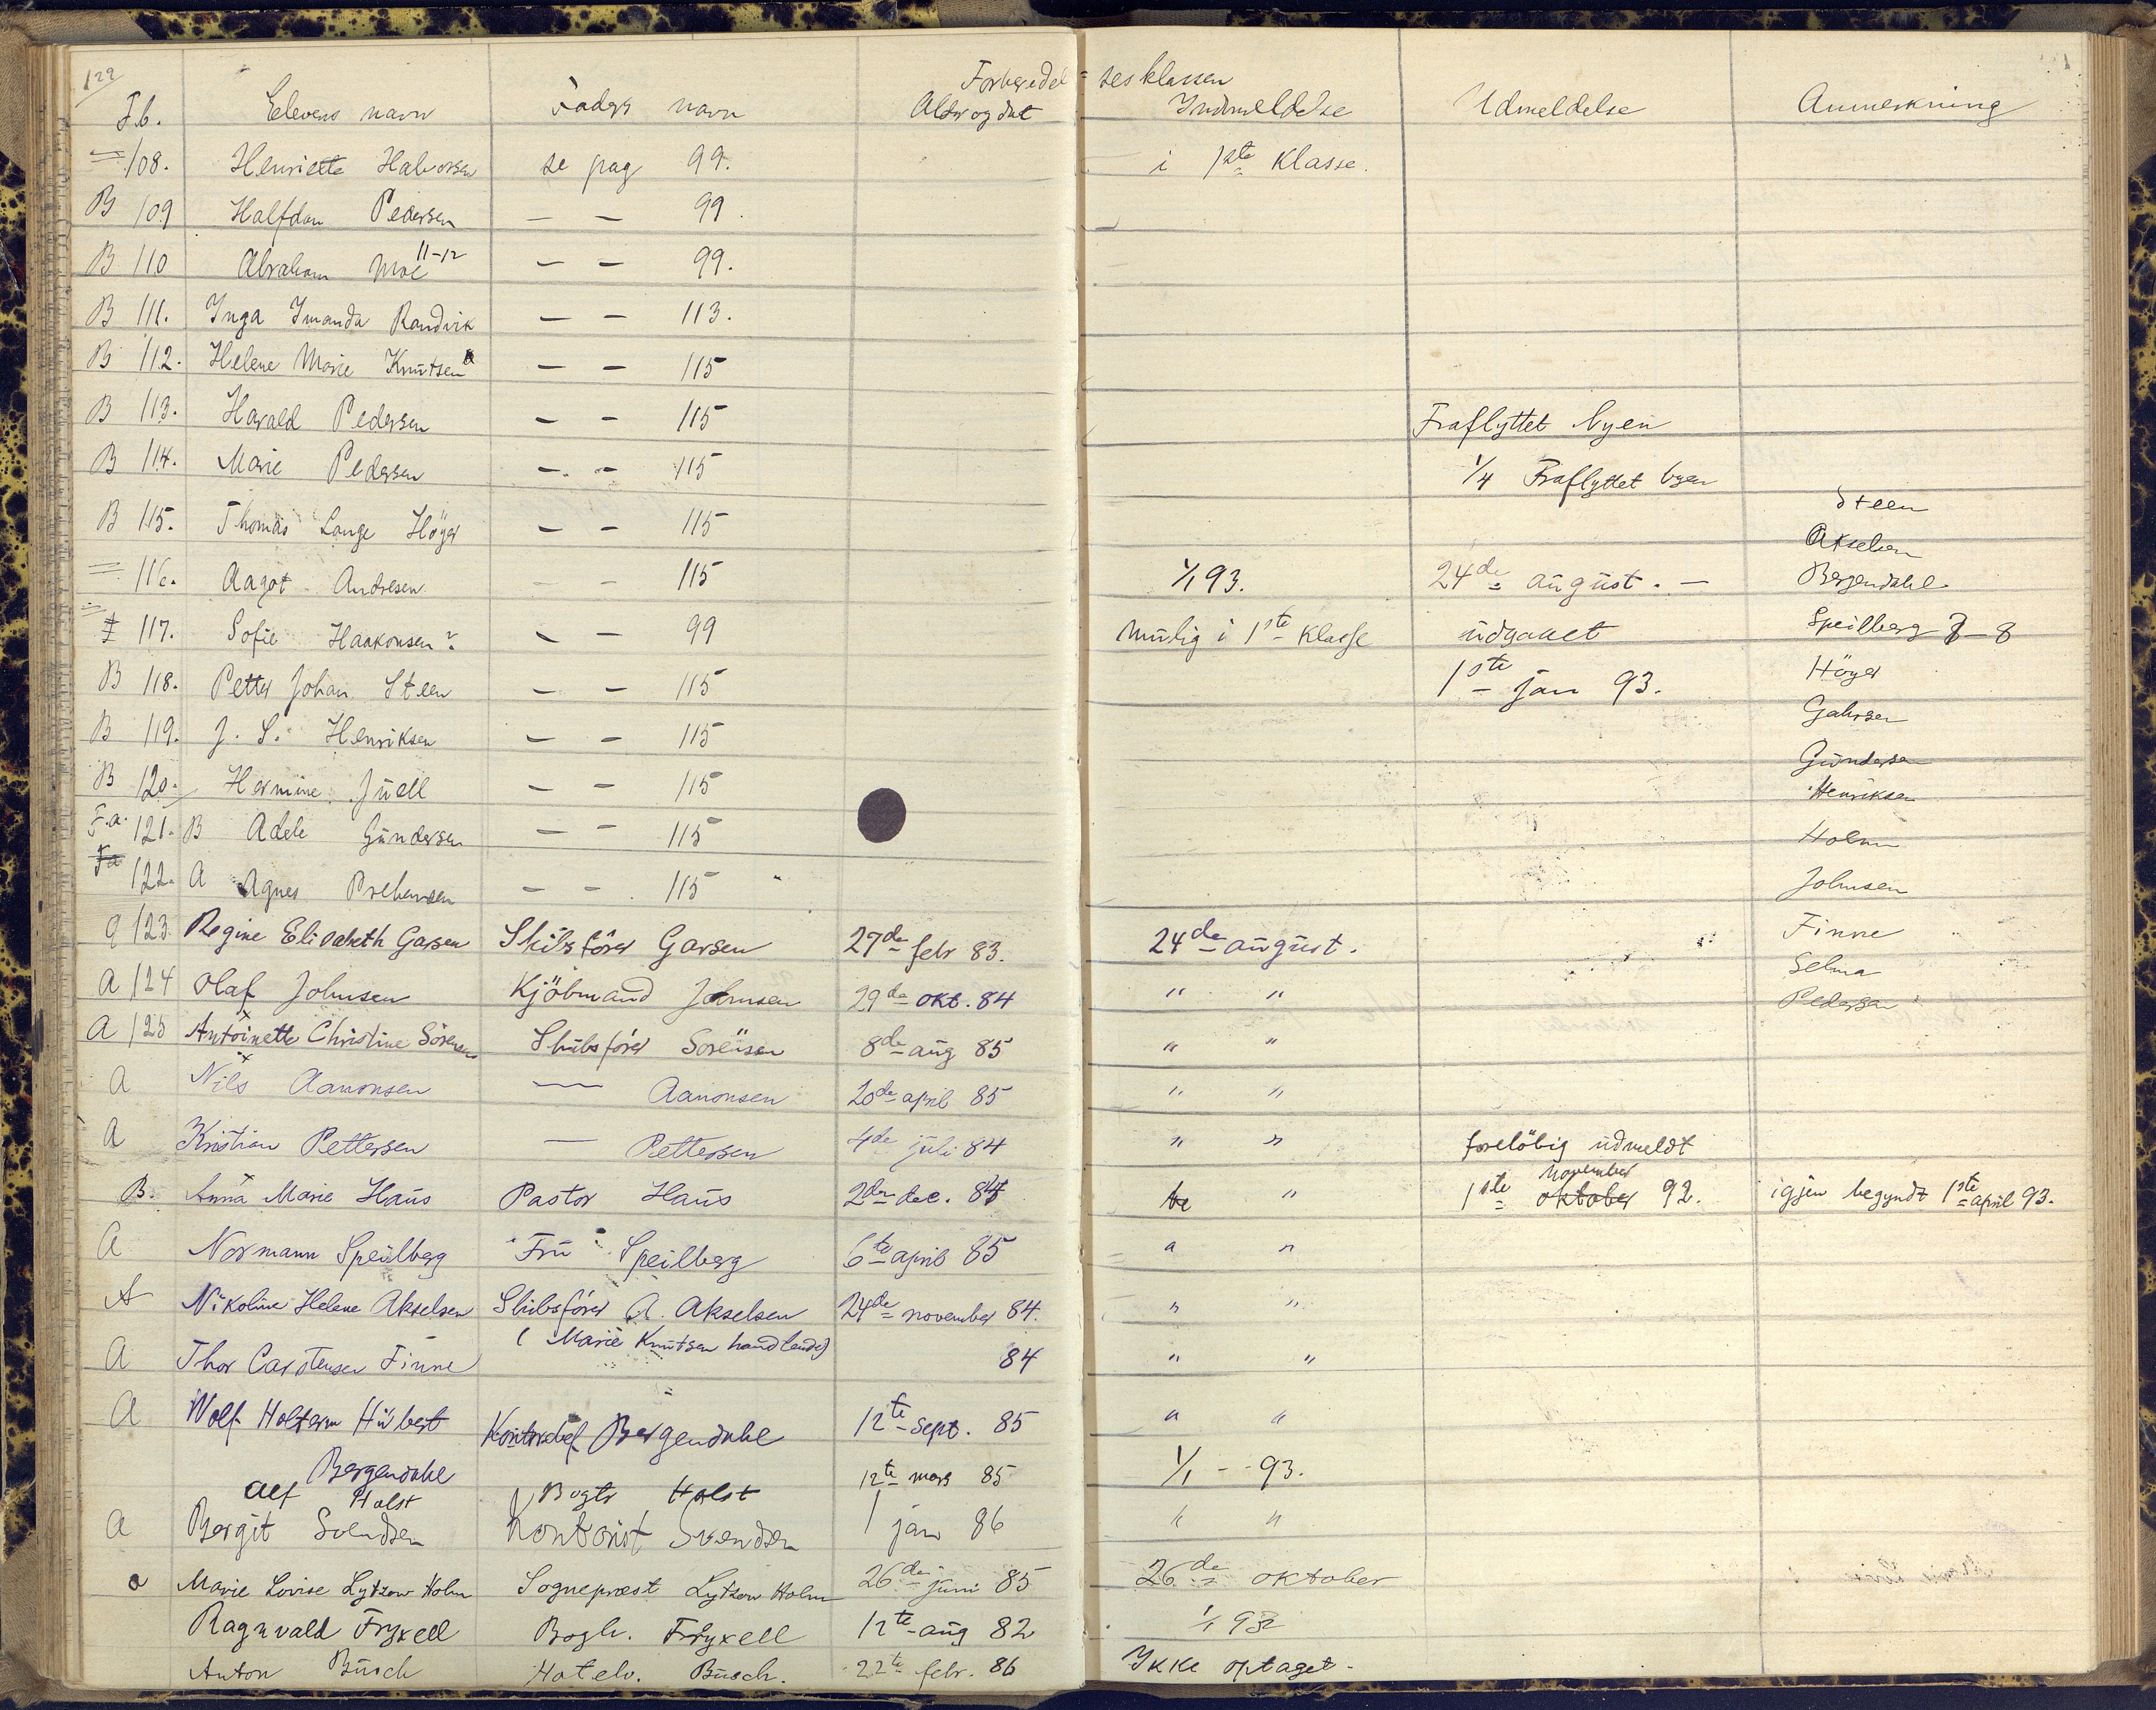 129
Forberedel=sesklassen
F.b. Elevens navn Faders navn Alder og dat Indmeldelse Udmeldelse Anmerkning
108. Henriette Halvorsen se pag 99. i 1ste Klasse.
B 109 Halfdan Pedersen — — 99.
B 110 Abraham Moe 11-12 — — 99.
B 111. Inga Imanda Randvik — — 113.
B 112. Helene Marie Knutsen — — 115
B 113. Harald Pedersen — — 115 Fraflyttet byen
B 114. Marie Pedersen — — 115 1/4 Fraflyttet byen
Steen
B 115. Thomas Lange Höyer — — 115
Akselsen
116. Aagot Andresen — — 115 1/1 93. 24de august. — Bergendahl
117. Sofie Haakonsen? — — 99 mulig i 1ste Klasse udgaaet Speilberg 7-8
B 118. Petter Johan Steen — — 115 1ste jan 93. Höyer
B 119. J. S. Henriksen — — 115 Gahrsen
B 120. Hermine Juell — — 115 Gundersen
Henriksen
F.a. 121. B Adele Gundersen — — 115 Holm
Fa 122. A Agnes Prebensen — — 115 Johnsen
g 123 Regine Elisabeth Garsen Skibsförer Garsen 27de febr 83. 24de august. Finne
Selma
A 124 Olaf Johnsen Kjöbmand Johnsen 29de okt. 84 " " Pedersen
A 125 Antoinette Christine Sörensen Skibsförer Sörensen 8de aug 85 " "
A Nils Aanonsen — Aanonsen 20de april 85 " "
A Kristian Pettersen — Pettersen 4de juli 84 " " foreløbig udmeldt
november
B Anna Marie Haus Pastor Haus 2den dec. 84 " 1ste oktober 92. igjen begyndt 1ste april 93.
A Normann Speilberg Fru Speilberg 6te april 85 " "
A Nikoline Helene Akselsen Skibsförer A. Akselsen 24de november 84. " "
A Thor Carstensen Finne (Marie Knutsen handlende) 84 " "
A Wolf Holterm Hubert Kontorchef Bergendahl 12te sept. 85 " "
Bergendahl
Alf Holst Bogtr Holst 12te mars 85 1/1 - 93.
A Bergit Svendsen Kontorist Svendsen 1 jan 86 " "
a Marie Lovise Lytzow Holm Sogneprest Lytzow Holm 26de juni 85 26de oktober
Ragnvald Fryxell Bogh. Fryxell 12te aug 82 1/1 93
Anton Busch Hotelv. Busch. 22de febr. 86 Ikke optaget.